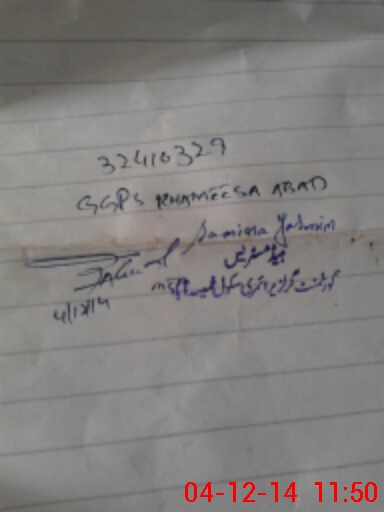 32410327
GGPS KHAMEESA ABAD
Samina Yasmin
ہیڈ مسٹریس
گورنمنٹ گرلز پرائمری سکول خمیسہ آباد
4/12/14
04-12-14 11:50